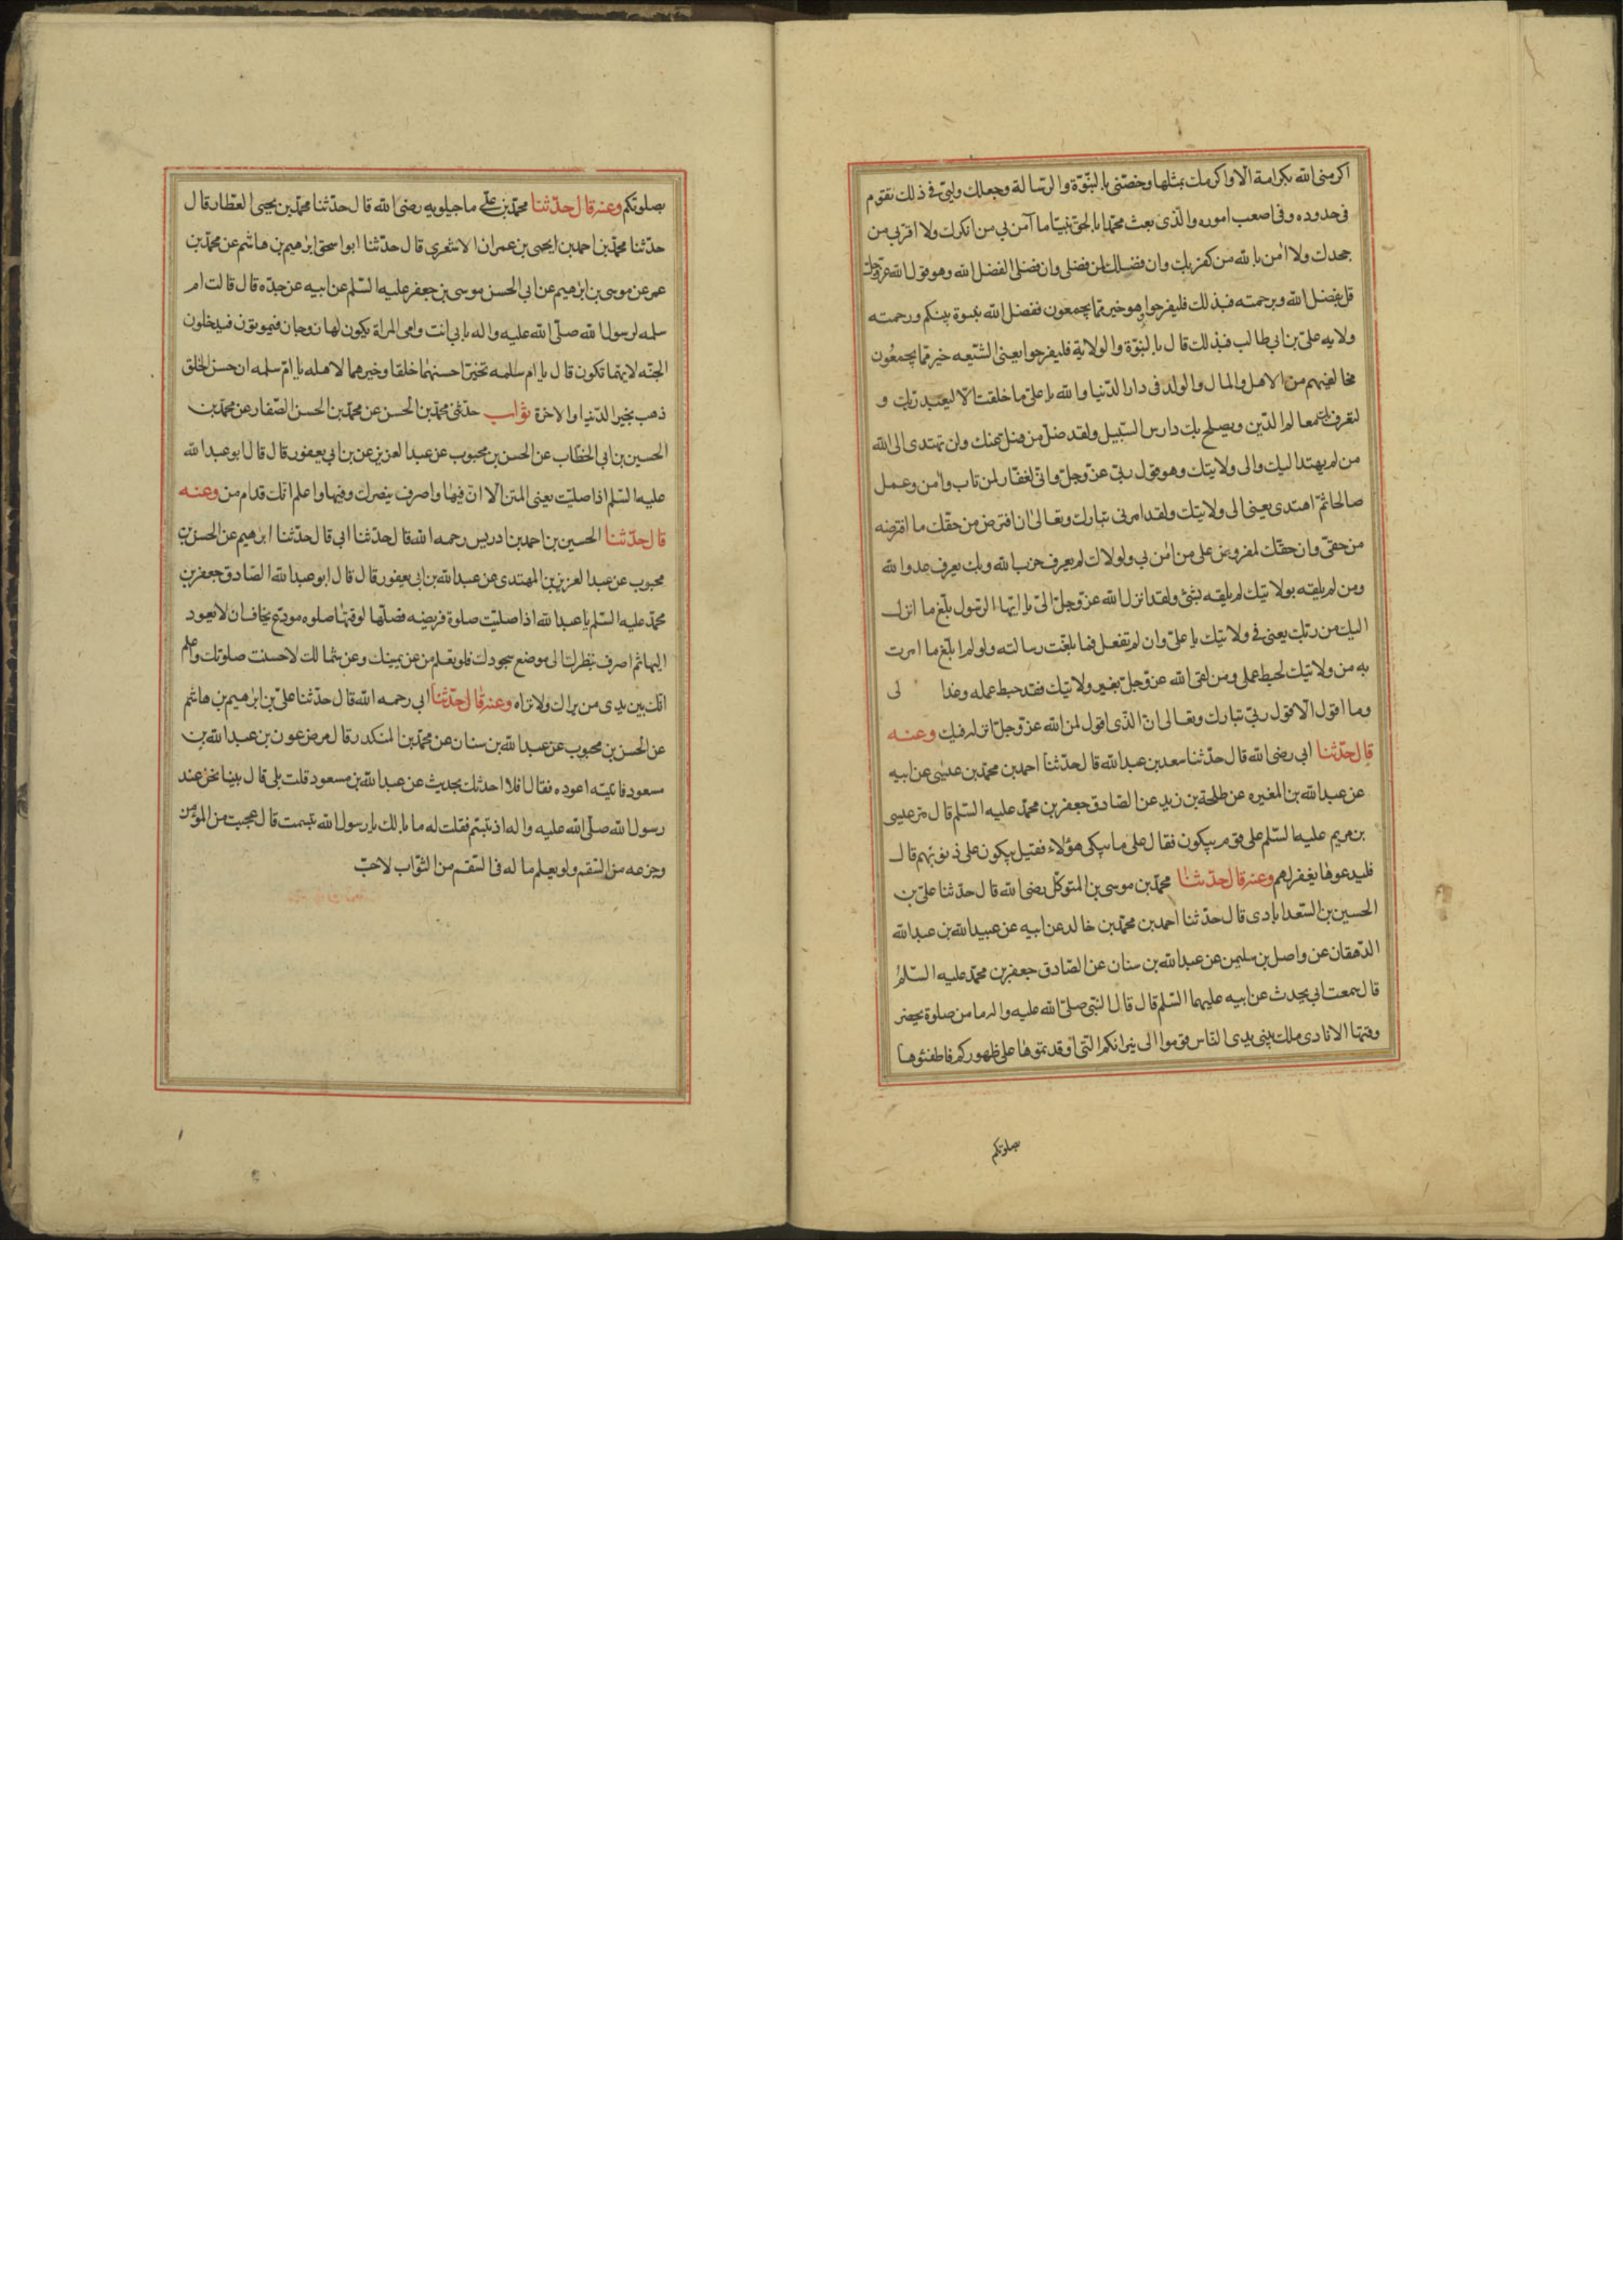 اكرمنى الله بكرامة الا واكرمك بمثلها وخصّنى بالنبّوة والرسالة وجعلك وليّى فى ذلك تقوم
فى حدوده وفى اصعب اموره والذى بعث محمّدا بالحق نبيّا ما آمن بى من انكرك ولا اقرّ بى من
جحدك ولا امن بالله من كفر بك وان فضلك لمن فضلى وان فضلى لفضل الله وهو قول الله عزّ وجلّ
قل بفضل الله وبرحمته فبذلك فليفرحوا هو خير ممّا يجمعون ففضل الله نبوة نبيكم ورحمته
ولايه علىّ بن ابى طالب فبذلك قال بالنبّوة والولاية فليفرحوا يعنى الشيعه خير ممّا يجمعُون
مخالفيهم من الاهل والمال والولد فى دار الدّنيا والله يا علىّ ما خلقت الا ليعبد ربك و
لتعرف بك معالم الدّين ويصلح بك دارس السّبيل ولقد ضلّ من ضل عنك ولن تهتدى الى الله
من لم يهتد اليك والى ولايتك وهو قول ربّى عزّ وجلّ وانّى لغفّار لمن تاب وآمن وعمل
صالحا ثمّ اهتدى يعنى الى ولايتك ولقد امرنى تبارك وتعالىٰ ان افترض من حقّك ما افترضه
من حقّى وان حقّك لمفروض على من امن بى ولولاك لم يعرف حزب الله وبك يعرف عدو الله
ومن لم يلقه بولايتك لم يلقه بشئ ولقد انزل الله عزّ وجلّ الىّ يا ايّها الرّسول بلّغ ما انزل
اليك من ربك يعنى فى ولايتك يا علىّ وان لم تفعل فما بلّغت رسالته ولو لم ابلّغ ما امرت
به من ولايتك لحبط عملى ومن لقى الله عزّ وجلّ بغير ولايتك فقد حبط عمله وغدا لى
وما اقول الّا قول ربّى تبارك وتعالى انّ الذّى اقول لمن الله عزّ وجلّ انزله فيك وعنه
قال حدّثنا ابى رضى الله قال حدّثنا سعد بن عبد الله قال حدّثنا احمد بن محمّد بن عيسٰى عن ابيه
عن عبد الله بن المغيره عن طلحة بن زيد عن الصّادق جعفر بن محمّد عليه السّلم قال مرّ عيسى
بن مريم عليه السّلم على قوم يبكون فقال على ما يبكى هؤلاء فقيل يبكون على ذنوبهم قال
فليدعوها يغفر لهم وعنه قال حدّثنا محمّد بن موسى بن المتوكّل رضى الله قال حدّثنا علىّ بن
الحسين بن السّعدابادى قال حدّثنا احمد بن محمّد بن خالد عن ابيه عن عبيد الله بن عبد الله
الدّهقان عن واصل بن سليمن عن عبد الله بن سنان عن الصّادق جعفر بن محمّد عليه السّلم
قال سمعت ابى يحدث عن ابيه عليهما السّلم قال قال النّبى صلىّ الله عليه واله ما من صلوة يحضر
وقتها الا نادى ملك بين يدى النّاس قوموا الى نيرانكم الّتى اوقدتموها على ظهوركم فاطفئوها
صلوتكم
بصلوتكم وعنه قال حدّثنا محمّد بن علّى ماجيلويه رضى الله قال حدّثنا محمّد بن يحيى العطّار قال
حدّثنا محمّد بن احمد بن ايحيى بن عمران الاشعرى قال حدّثنا ابو اسحق ابرٰهيم بن هاشم عن محمّد بن
عمر عن موسى بن ابرٰهيم عن ابى الحسن موسى بن جعفر عليه السّلم عن ابيه عن جدّه قال قالت ام
سلمه لرسول الله صلّى الله عليه واله بابى انت وامى المراة يكون لها زوجان فيموتون فيدخلون
الجنّه لايهما تكون قال يا ام سلمه تخيّر احسنهما خلقا وخيرهما لاهله يا امّ سلمه ان حسن الخلق
ذهب بخير الدّنيا والاخرة ثواب حدّثنى محمّد بن الحسن عن محمّد بن الحسن الصّفار عن محمّد بن
الحسين بن ابى الخطّاب عن الحسن بن محبوب عن عبد العزيز عن بن ابى يعفور قال قال ابو عبد الله
عليه السّلم اذا صليّت يعنى المتن الّا انّ فيها واصرف بنصرك وفيها واعلم انّك قدام من وعنه
قال حدّثنا الحسين بن احمد بن ادريس رحمه الله قال حدّثنا ابى قال حدّثنا ابرٰهيم عن الحسن بن
محبوب عن عبد العزيز بن المهتدى عن عبد الله بن ابى يعفور قال قال ابو عبد الله الصّادق جعفر بن
محمّد عليه السّلم يا عبد الله اذا صليّت صلوة فريضه فصلّها لوقتها صلوه مودّع يخاف ان لا يعود
اليها ثم اصرف بنظرك الى موضع سجودك فلو تعلم من عن يمينك وعن شمالك لاحسنت صلوتك واعلم
انّك بين يدى من يراك ولا تراه وعنه قال حدّثنا ابى رحمه الله قال حدّثنا علىّ بن ابرٰهيم بن هاشم
عن الحسن بن محبوب عن عبد الله بن سنان عن محمّد بن المنكدر قال مرض عون بن عبد الله بن
مسعود فاتيته اعوده فقال افلا احدثك بحديث عن عبد الله بن مسعود قلت بلى قال بينا نحن عند
رسول الله صلّى الله عليه واله اذ تبسّم فقلت له ما بالك يا رسول الله تبسمت قال عجبت من المؤمن
وجزعه من السّقم ولو يعلم ما له فى السّقم من الثّواب لاحبّ